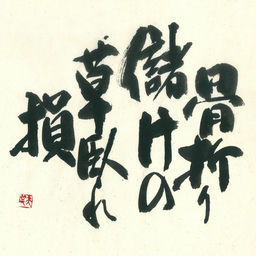 骨折り
儲けの
草臥れ
損